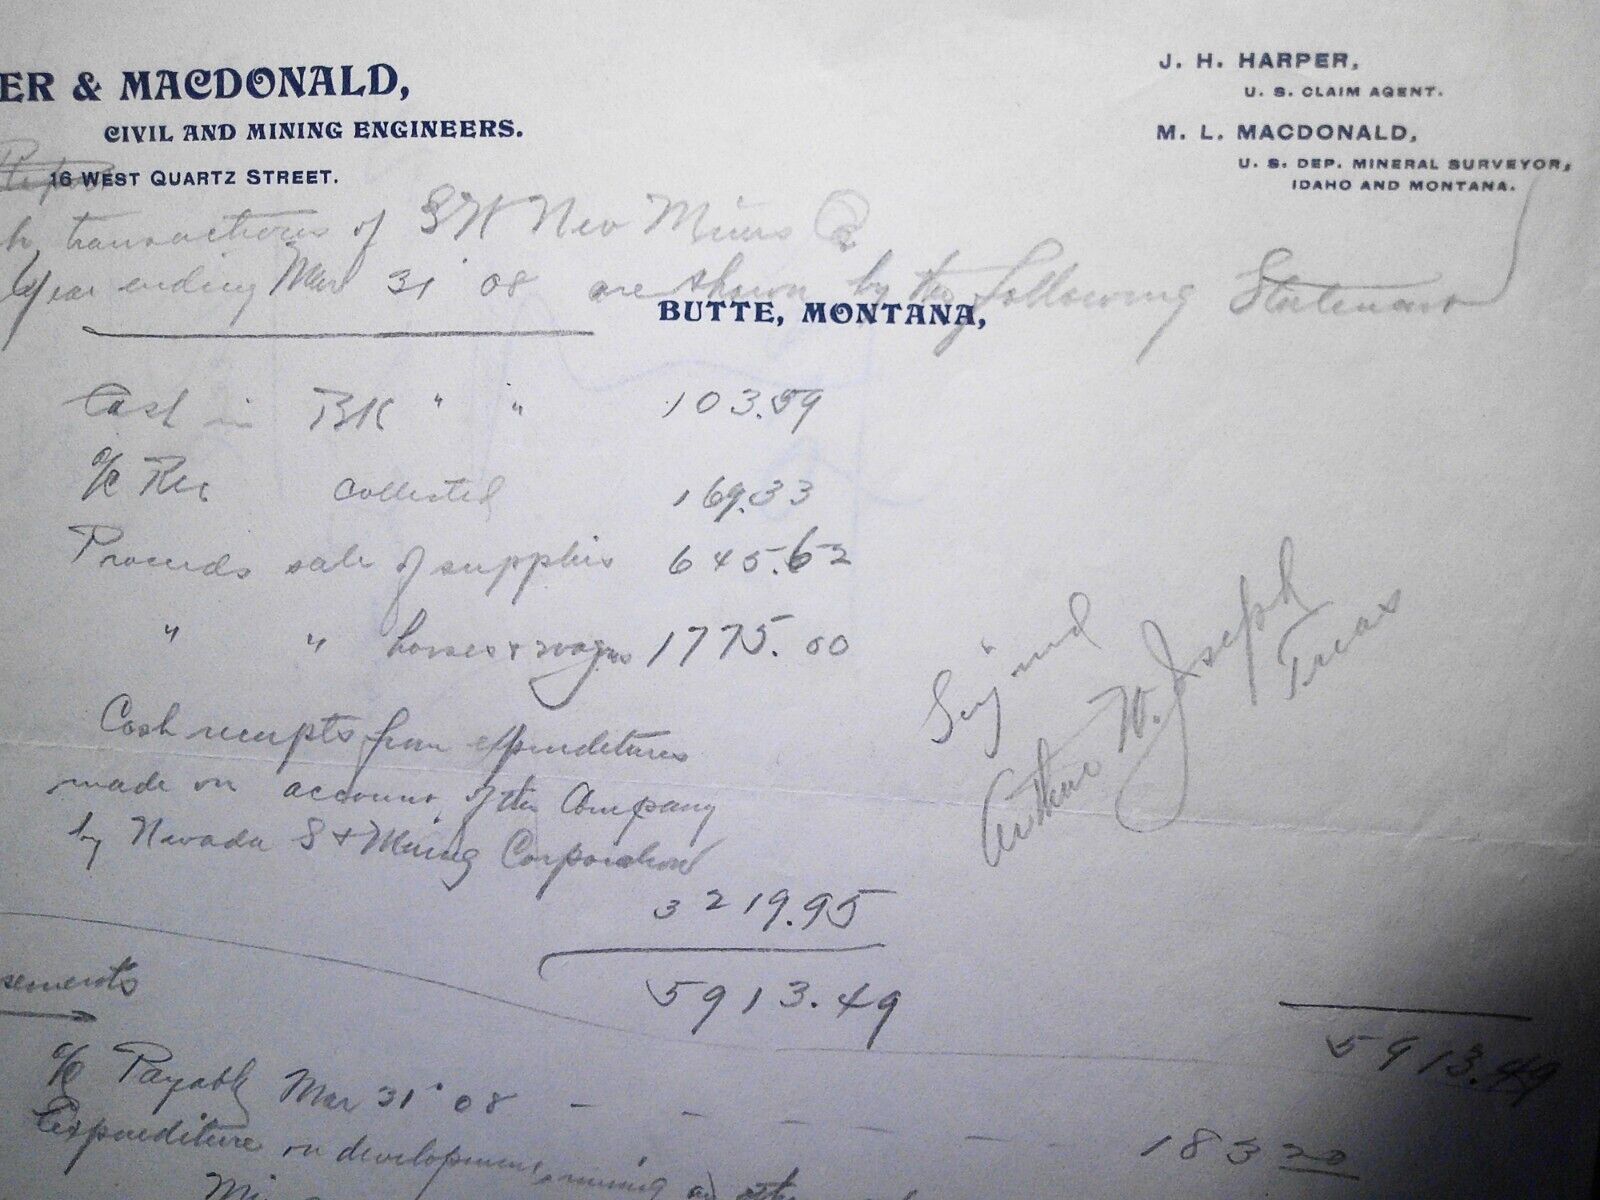 ER & MACDONALD,
CIVIL AND MINING ENGINEERS.
16 WEST QUARTZ STREET.
J. H. HARPER,
U. S. CLAIM AGENT.
M. L. MACDONALD,
U. S. DEP. MINERAL SURVEYOR,
IDAHO AND MONTANA.
transactions of Nev Mines Co
Year ending Mar 31 08 are shown by the following Statement
BUTTE, MONTANA,
Cash in BK " " 103.59
a/c Rec collected 169.33
Proceeds sale of supplies 645.62
" " horses & wagns 1775.00
Cash receipts from expenditures
made on account of the Company
by Nevada S & Mining Corporation
3219.95
5913.49
Signed
Arthur W. Joseph
Treas
sements
5913.49
a/c Payable Mar 31 08 - - - - - 183 20
Expenditure on development mining